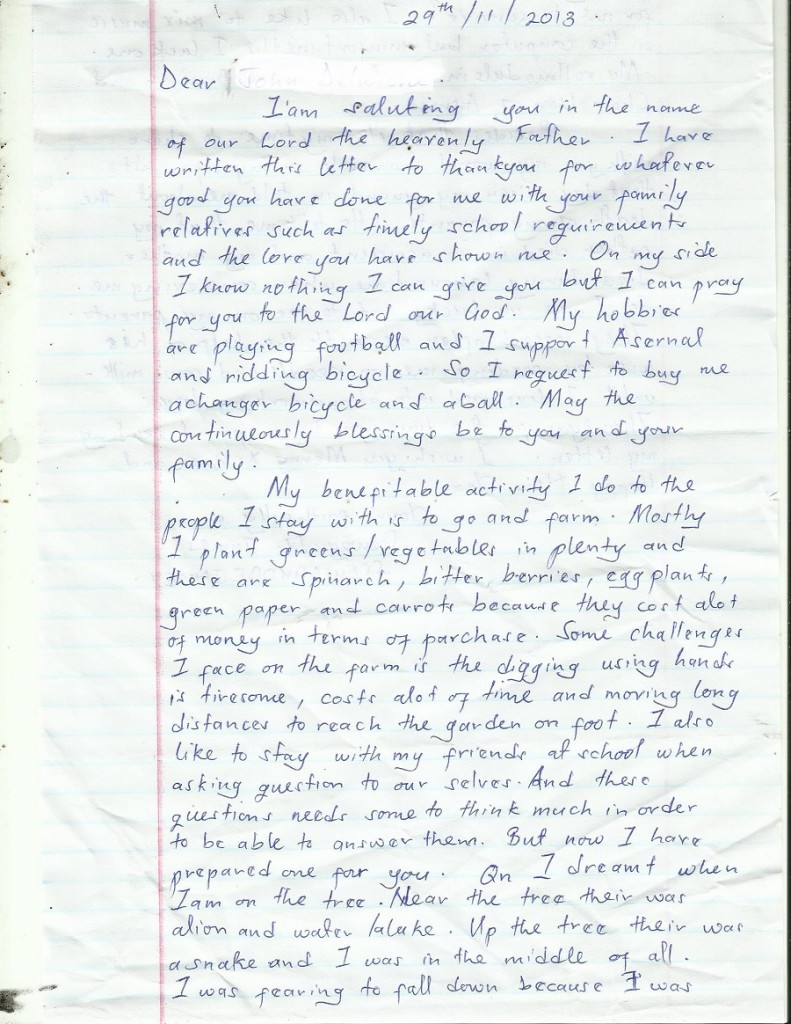 29th/11/2013
Dear
I'am saluting you in the name
of our Lord the heavenly Father. I have
written this letter to thankyou for whatever
good you have done for me with your family
relatives such as timely school requirements
and the love you have shown me. On my side
I know nothing I can give you but I can pray
for you to the Lord our God. My hobbies
are playing football and I support Asernal
and ridding bicycle. So I request to buy me
achanger bicycle and aball. May the
continueously blessings be to you and your
family.
My benefitable activity I do to the
people I stay with is to go and farm. Mostly
I plant greens/vegetables in plenty and
these are spinarch, bitter berries, egg plants,
green paper and carrots because they cost alot
of money in terms of parchase. Some challenges
I face on the farm is the digging using hands
is tiresome, costs alot of time and moving long
distances to reach the garden on foot. I also
like to stay with my friends at school when
asking question to our selves. And these
questions needs some to think much in order
to be able to answer them. But now I have
prepared one for you. Qn I dreamt when
Iam on the tree. Near the tree their was
alion and water /alake. Up the tree their was
asnake and I was in the middle of all.
I was fearing to fall down because I was